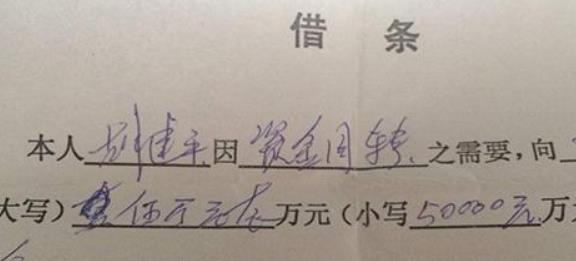 借 条
本人刘建平因资金周转之需要,向
大写)伍万元整万元(小写50000元万